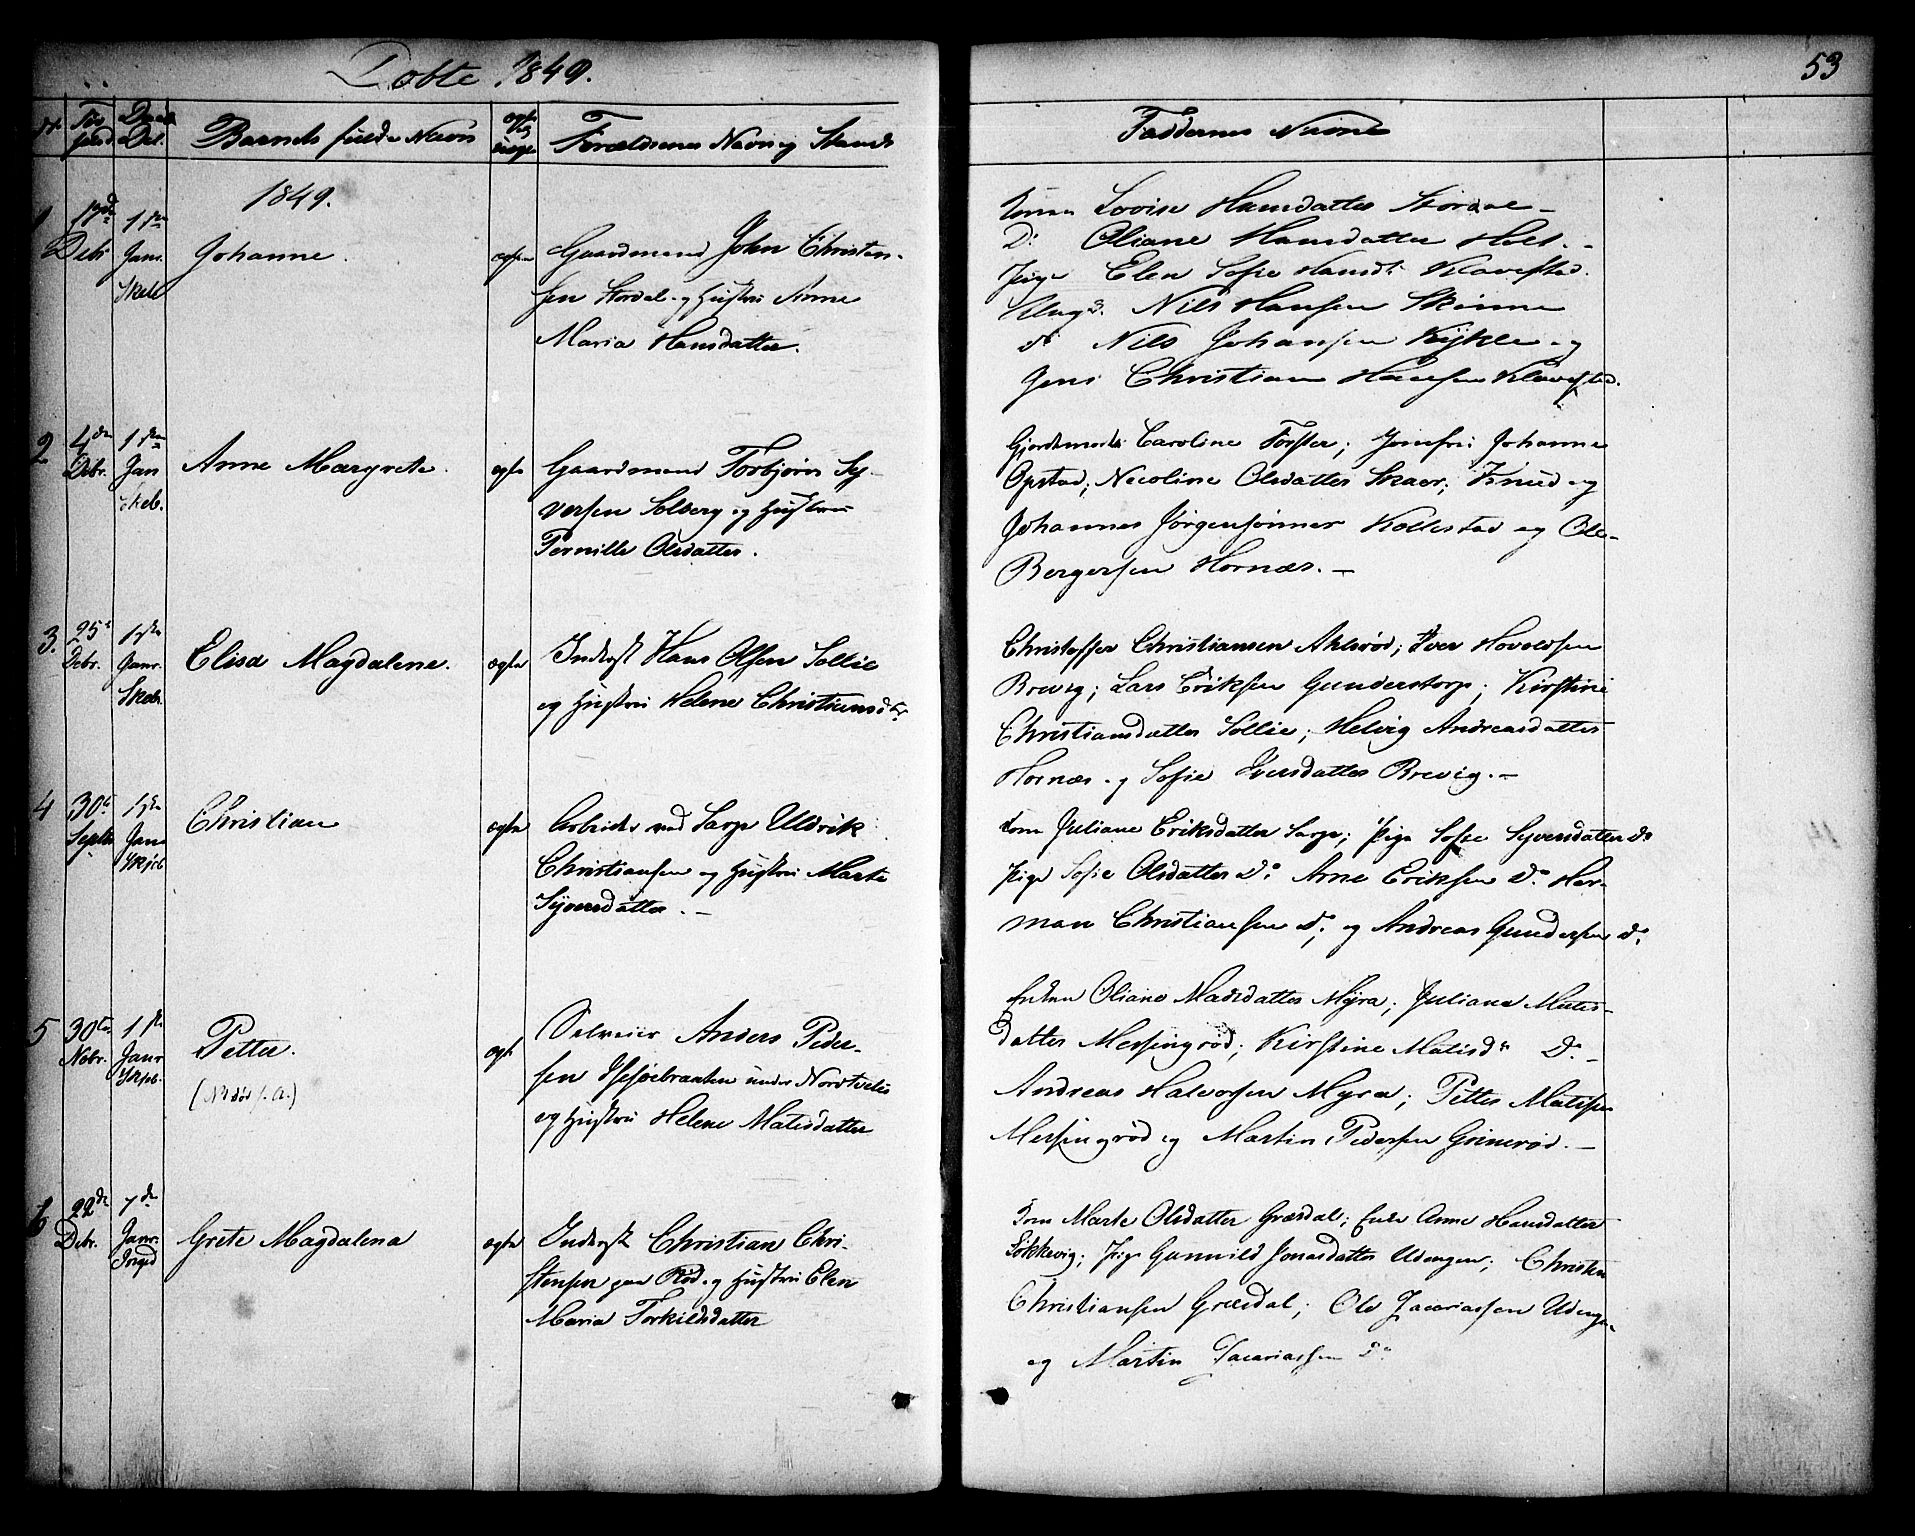 Døbte 1849.
53
Barnets fulde Navn
Forældrenes Navn og Stand
Faddernes Navne
1849.
1
17de Debr
1ste Janr. Skeb
Johanne.
ægte
Gaardmand John Christen-
sen Stordal og Hustru Anne
Maria Hansdatter.
Kone Lovise Hansdatter
Do Oliane Hansdatter
Pige Elen Sofie Hansdr Klavestad.
Ungk. Nils Hansen Skinne
do Nils Johansen Kykle og
Jens Christian Hansen Klavestad.
2
4de Debr.
1ste Jan Skeb.
Anne Margrete.
ægte
Gaardmand Torbjørn Sy-
versen Solberg og Hustru
Pernille Olsdatter.
Gjordemoder Caroline Forster; Jomfru Johanne
Opstad; Nicoline Olsdatter Skaar; Knud og
Johannes Jørgensønner Kollestad og Ole
Bergersen Hornæs. –
3.
25de Debr.
1ste Janr. Skeb.
Elisa Magdalene.
ægte
Inderst Hans Olsen Sollie
og Hustru Helene Christiansdtr.
Christoffer Christiansen Ahlsrød; Iver Hovelsen
Brevig; Lars Eriksen Gunderstorp; Kirstine
Christiansdatter Sollie; Helvig Andreasdatter
Hornæs og Sofie Iversdatter Brevig. –
4
30te Septbr
1ste Jan Skjeb
Christian
ægte
Arbeider ved Sarp Uldrik
Christiansen og Hustru Marte
Syversdatter. –
Kone Juliane Eriksdatter Sarp; Pige Sofie Syversdatter do
Pige Sofie Olsdatter Do Arne Eriksen Do Her-
man Christiansen do; og Andreas Gundersen do.
5
30te Nobr.
1ste Janr Skjeb.
Petter.
ægte
Selveier Anders Peder-
sen under Nordtvete
og Hustru Helene Matisdatter
Enken Oliane Madsdatter Myra; Juliane Matis-
datter Messingrød; Kirstine Matisdr Do –
Andreas Halvorsen Myra; Petter Matisen
Messingrød og Martin Pedersen Grimsrød. –
6
22de Debr.
7de Janr. Torged
Grete Magdalena
ægte
Inderst Christian Chri-
stensen paa Rød og Hustru Elen
Maria Torkildsdatter
Kone Marte Olsdatter Græsdal; Enke Anne Hansdatter
Løkkevig; Pige Gunnild Jonasdatter Udengen; Christen
Christiansen Græsdal; Ole Zacariassen Udenge-
og Martin Zacariassen do